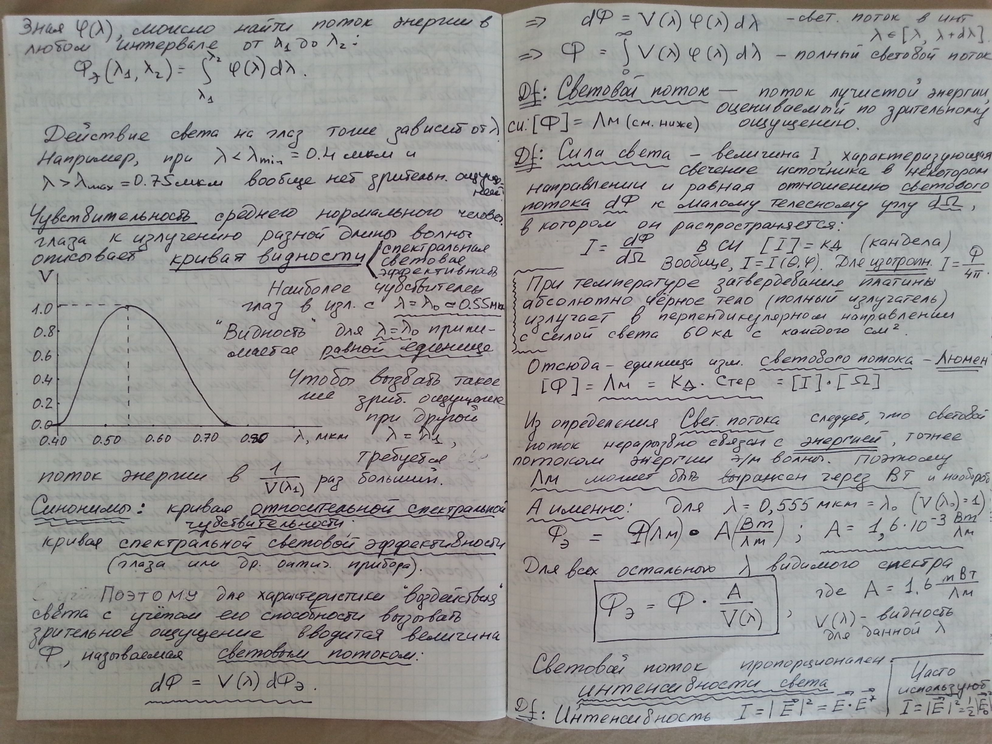 Зная φ(λ), можно найти поток энергии в
любом интервале от λ₁ до λ₂:
Φэ(λ₁, λ₂) = ∫ φ(λ) dλ.
λ₂
λ₁
Действие света на глаз тоже зависит от λ.
Например, при λ < λmin = 0.4 мкм и
λ > λmax = 0.75 мкм вообще нет зрительн. ощущений
Чувствительность среднего нормального человеч.
глаза к излучению разной длины волны
описывает кривая видности
спектральная
световая
эффективность
V
1.0
0.8
0.6
0.4
0.2
0
0.40 0.50 0.60 0.70 λ, мкм
Наиболее чувствителен
глаз в изл. с λ = λ₀ ≃ 0.55 мкм
"Видность" для λ = λ₀ прини-
мается равной единице
Чтобы вызвать такое
же зрит. ощущение
при другой
λ = λ₁,
требуется
поток энергии в 1/V(λ₁) раз больший.
Синонимы: кривая относительной спектральной
чувствительности
кривая спектральной световой эффективности
(глаза или др. оптич. прибора).
Поэтому для характеристики "воздействия"
света с учётом его способности вызывать
зрительное ощущение вводится величина
Φ, называемая световым потоком:
dΦ = V(λ) dΦэ.
⇒ dΦ = V(λ) φ(λ) dλ - свет. поток в инт
λ ∈ [λ, λ+dλ].
⇒ Φ = ∫ V(λ) φ(λ) dλ - полный световой поток
∞
0
Df: Световой поток — поток лучистой энергии,
оцениваемый по зрительному
ощущению.
СИ: [Φ] = Лм (см. ниже)
Df: Сила света - величина I, характеризующая
свечение источника в некотором
направлении и равная отношению светового
потока dΦ к малому телесному углу dΩ,
в котором он распространяется:
I = dΦ/dΩ В СИ [I] = кд (кандела)
Вообще, I = I(θ,φ). Для изотропн. I = Φ/4π.
При температуре затвердевание платины
абсолютно чёрное тело (полный излучатель)
излучает в перпендикулярном направлении
с силой света 60 кд с каждого см².
Отсюда - единица изм. светового потока - Люмен
[Φ] = Лм = Кд · Стер = [I]·[Ω]
Из определения Свет. потока следует, что световой
поток неразрывно связан с энергией, точнее
потоком энергии э/м волны. Поэтому
Лм может быть выражен через Вт и наоборот
А именно: для λ = 0,555 мкм = λ₀ (V(λ₀)=1)
Φэ = Φ(Лм) · A(Вт/Лм) ; A = 1,6·10⁻³ Вт/Лм
Для всех остальных λ видимого спектра
Φэ = Φ · A/V(λ) ,
где A = 1,6 мВт/Лм
V(λ) - видность
для данной λ
Световой поток пропорционален
интенсивности света
Df: Интенсивность I = |E⃗|² = E⃗·E⃗*
Часто
используют
I = |E⃗|² = ½|E⃗₀|²